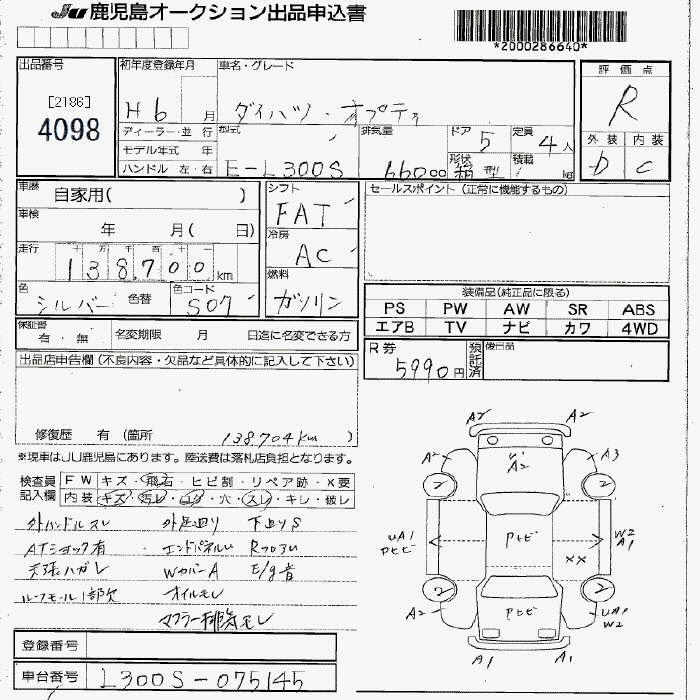 JU 鹿児島オークション出品申込書
*2000286640*
出品番号
[2186]
4098
初年度登録年月
H 6 月
車名・グレード
ダイハツ・オプティ
ディーラー・並 行
モデル年式 年
ハンドル 左・右
型式
E-L300S
排気量
66000
ドア
5
定員
4人
形状
箱型
積載
kg
評価点
R
外装 内装
D C
車歴
自家用( )
車検
年 月( 日)
走行
十 万 千 百 十 一
138,700 km
色
シルバー 色替
色コード
S07
シフト
FAT
冷房
AC
燃料
ガソリン
セールスポイント (正常に機能するもの)
装備品(純正品に限る)
PS PW AW SR ABS
エアB TV ナビ カワ 4WD
保証書
有・無
名変期限 月 日迄に名変できる方
R券
5990円
預託済
後日品
出品店申告欄 (不良内容・欠品など具体的に記入して下さい)
修復歴 有 (箇所 138704km )
※現車はJU鹿児島にあります。陸送費は落札店負担となります。
検査員記入欄
FW キズ・飛石・ヒビ割・リペア跡・X要
内装 キズ・汚レ・コゲ・穴・スレ・キレ・破レ
外ハンドルスレ 外足廻り 下廻りS
ATショック有 エンドパネルU
天張ハガレ WカバーA E/g音
ルーフモール1部欠 オイルモレ
マフラー排気モレ
登録番号
車台番号
L300S-075145
A2 A2
A2 A2 A3
2 2
UA1 PトビPトビ W2 A1
XX
2 2
A2 Pトビ UA1 W2
A1 A1